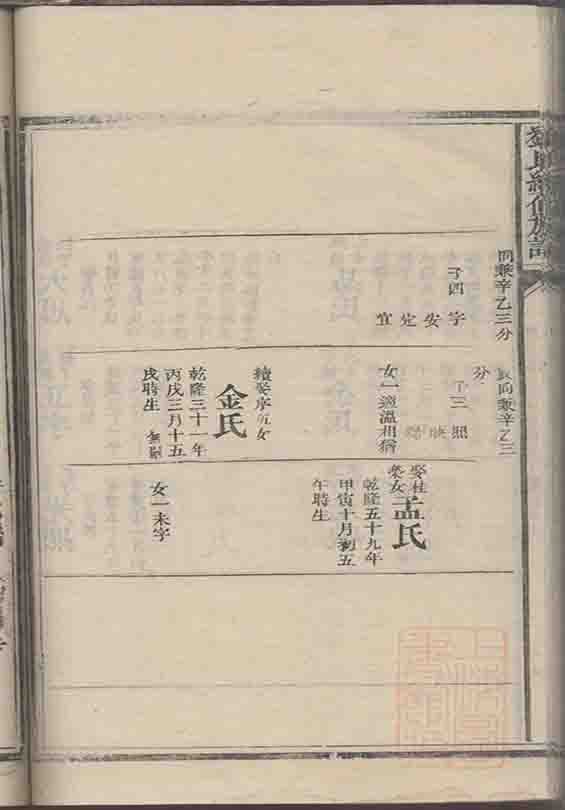 氏續修族譜
向兼辛乙三分
子四 字
安
定
宜
艮向兼辛乙三
分
子三 照
女一適溫相猶
續娶序五女
金氏
乾隆三十一年
丙戌三月十五
戌時生
娶桂
榮女
孟氏
乾隆五十九年
甲寅十月初五
午時生
女一未字